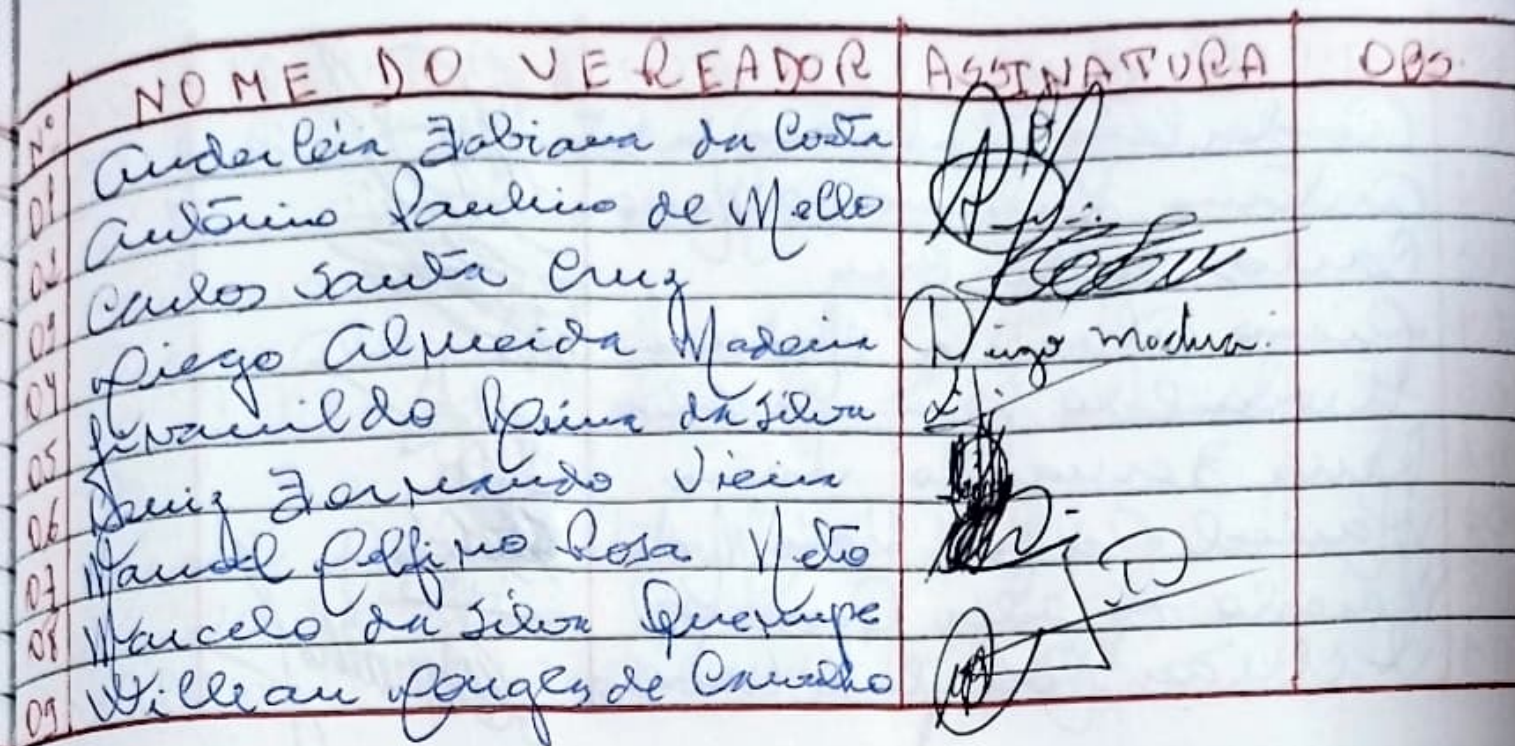 Nº NOME DO VEREADOR ASSINATURA OBS.
01 Anderleia Fabiana da Costa
02 Antônio Paulino de Mello
03 Carlos Santa Cruz
04 Diego Almeida Madeira Diego Madeira.
05 da Silva
06 Luiz Fernando Vieira
07 Manoel Delfino Rosa Neto
08 Marcelo da Silva
09 Willian de Carvalho